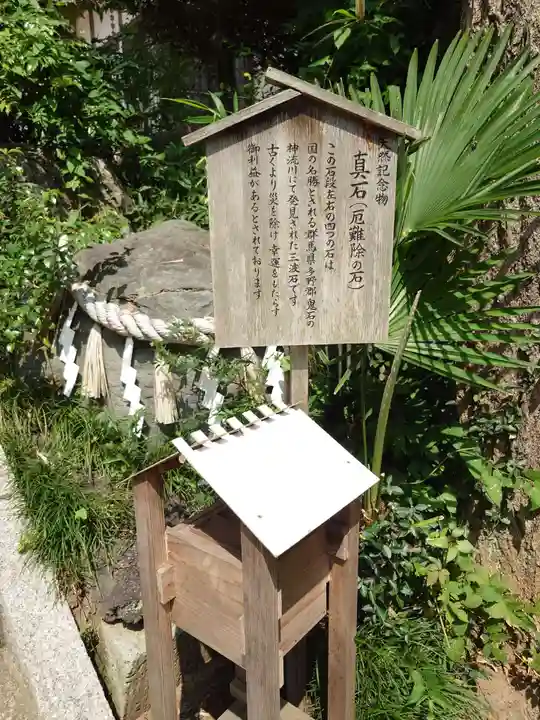 天然記念物
真石(厄難除の石)
この石段左右の四つの石は
国の名勝とされる群馬県多野郡鬼石の
神流川にて発見された三波石です
古くより災を除け幸運をもたらす
御利益があるとされております